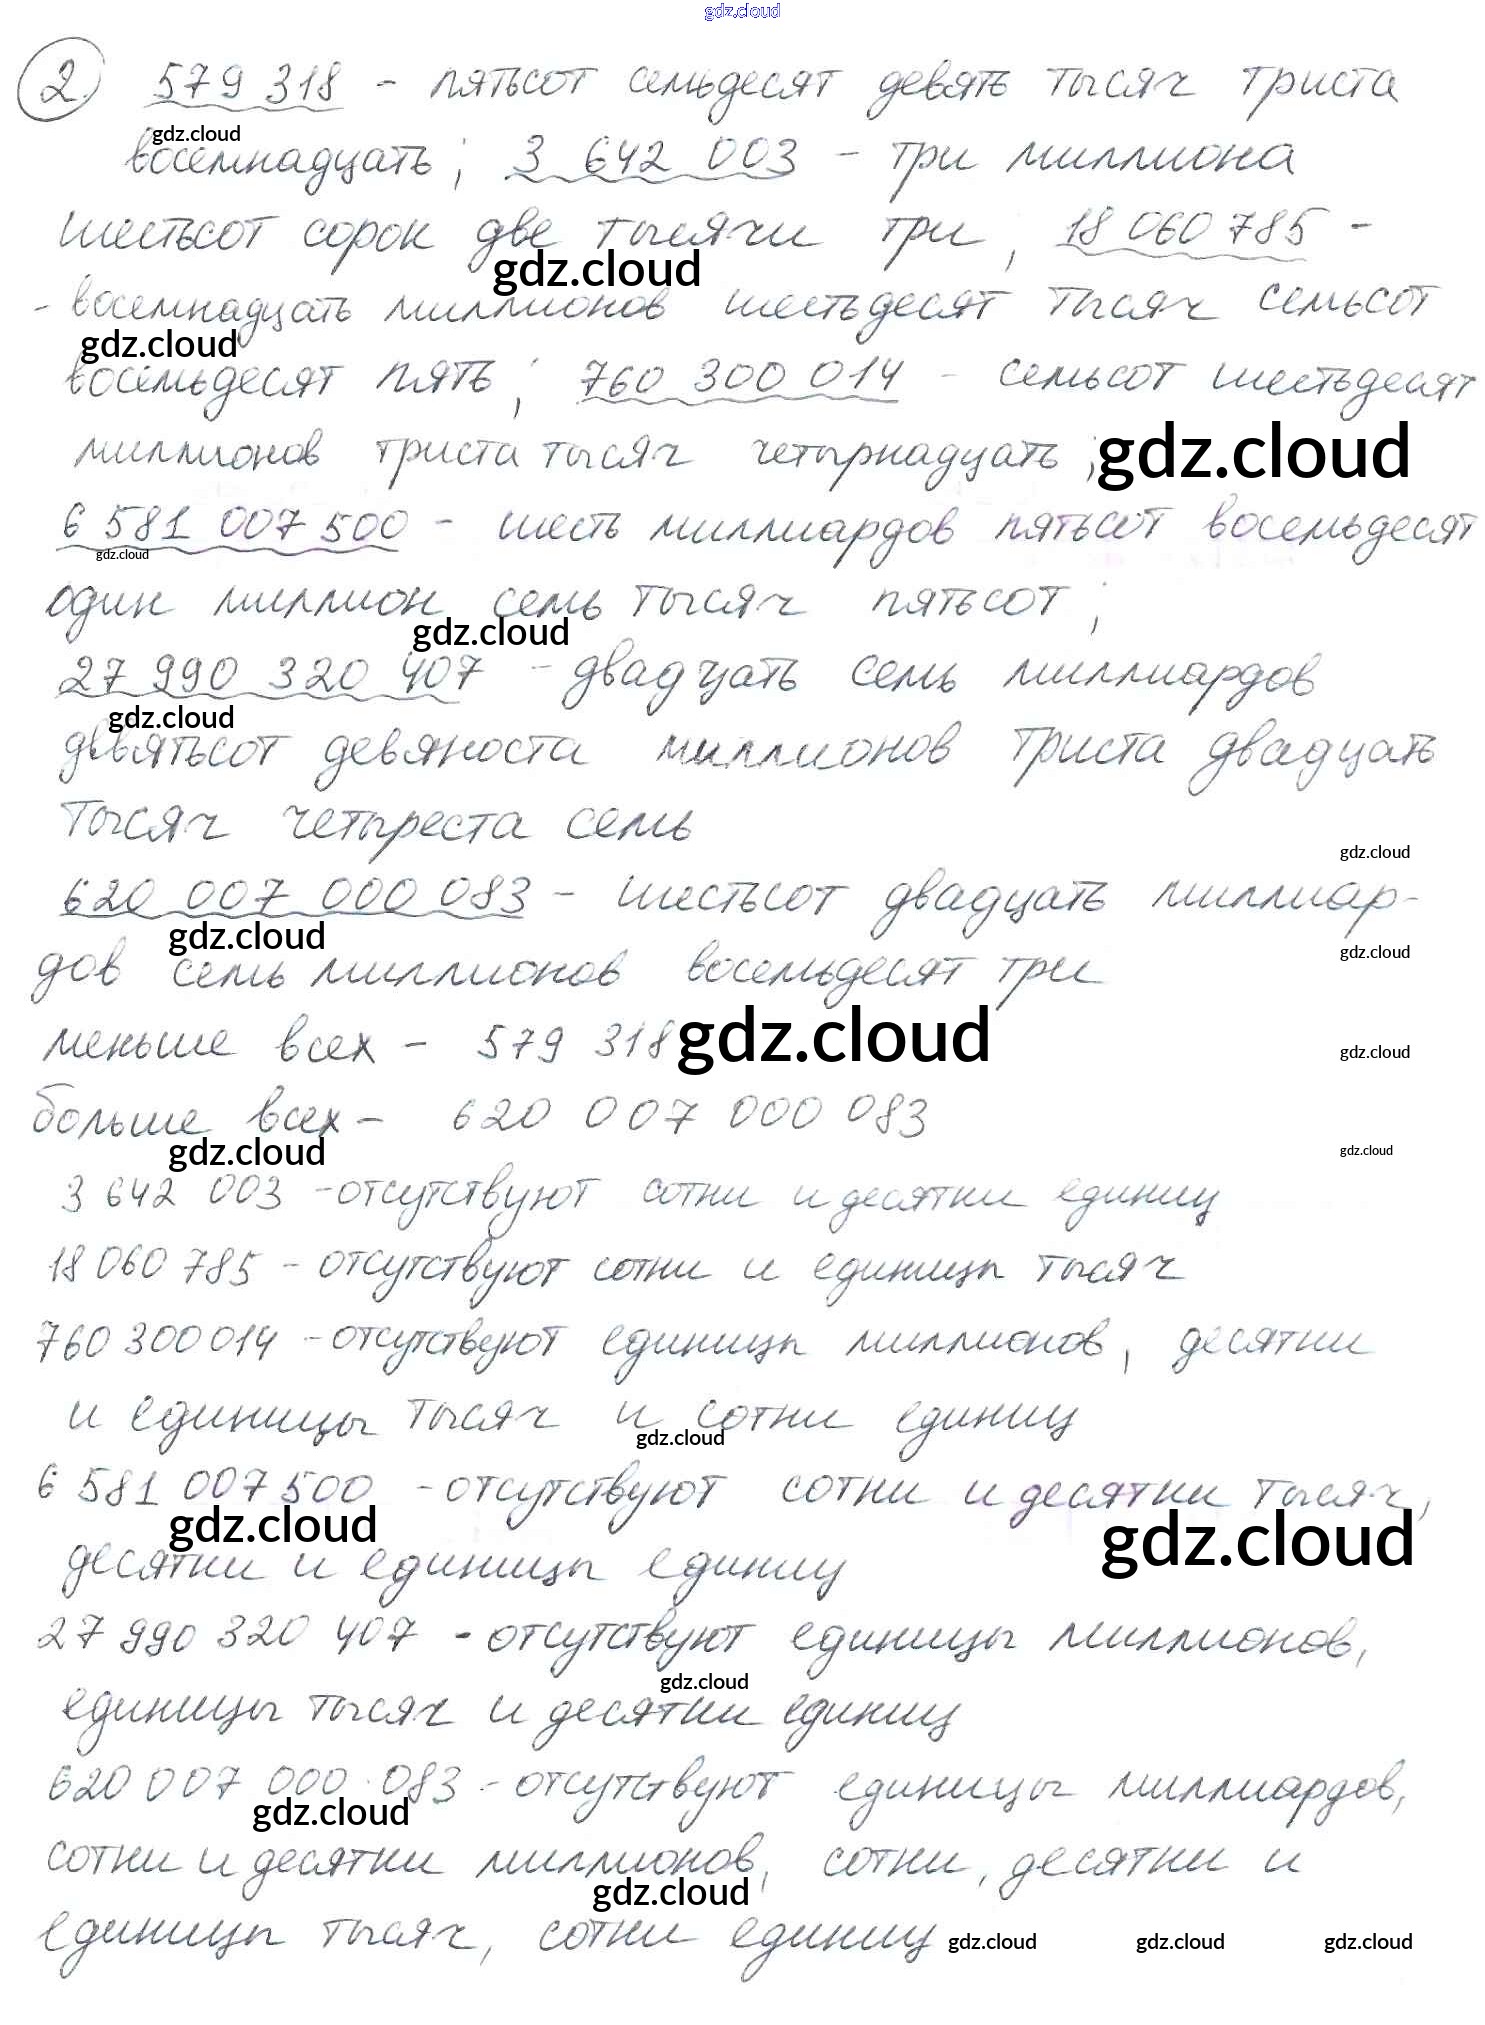 gdz.cloud
2 579 318 - пятьсот семьдесят девять тысяч триста
gdz.cloud
восемнадцать; 3 642 003 - три миллиона
шестьсот сорок две тысячи три, 18 060 785 -
gdz.cloud
- восемнадцать миллионов шестьдесят тысяч семьсот
gdz.cloud
восемьдесят пять; 760 300 014 - семьсот шестьдесят
миллионов триста тысяч четырнадцать; gdz.cloud
6 581 007 500 - шесть миллиардов пятьсот восемьдесят
gdz.cloud
один миллион семь тысяч пятьсот;
gdz.cloud
27 990 320 407 - двадцать семь миллиардов
gdz.cloud
девятьсот девяноста миллионов триста двадцать
тысяч четыреста семь
gdz.cloud
620 007 000 083 - шестьсот двадцать миллиар-
gdz.cloud
gdz.cloud
дов семь миллионов восемьдесят три
меньше всех - 579 318 gdz.cloud
gdz.cloud
больше всех - 620 007 000 083
gdz.cloud
gdz.cloud
3 642 003 - отсутствуют сотни и десятки единиц
18 060 785 - отсутствуют сотни и единицы тысяч
760 300 014 - отсутствуют единицы миллионов, десятки
и единицы тысяч и сотни единиц
gdz.cloud
6 581 007 500 - отсутствуют сотни и десятки тысяч,
gdz.cloud
gdz.cloud
десятки и единицы единиц
27 990 320 407 - отсутствуют единицы миллионов,
gdz.cloud
единицы тысяч и десятки единиц
620 007 000 083 - отсутствуют единицы миллиардов,
gdz.cloud
сотни и десятки миллионов, сотни, десятки и
gdz.cloud
единицы тысяч, сотни единиц gdz.cloud gdz.cloud gdz.cloud